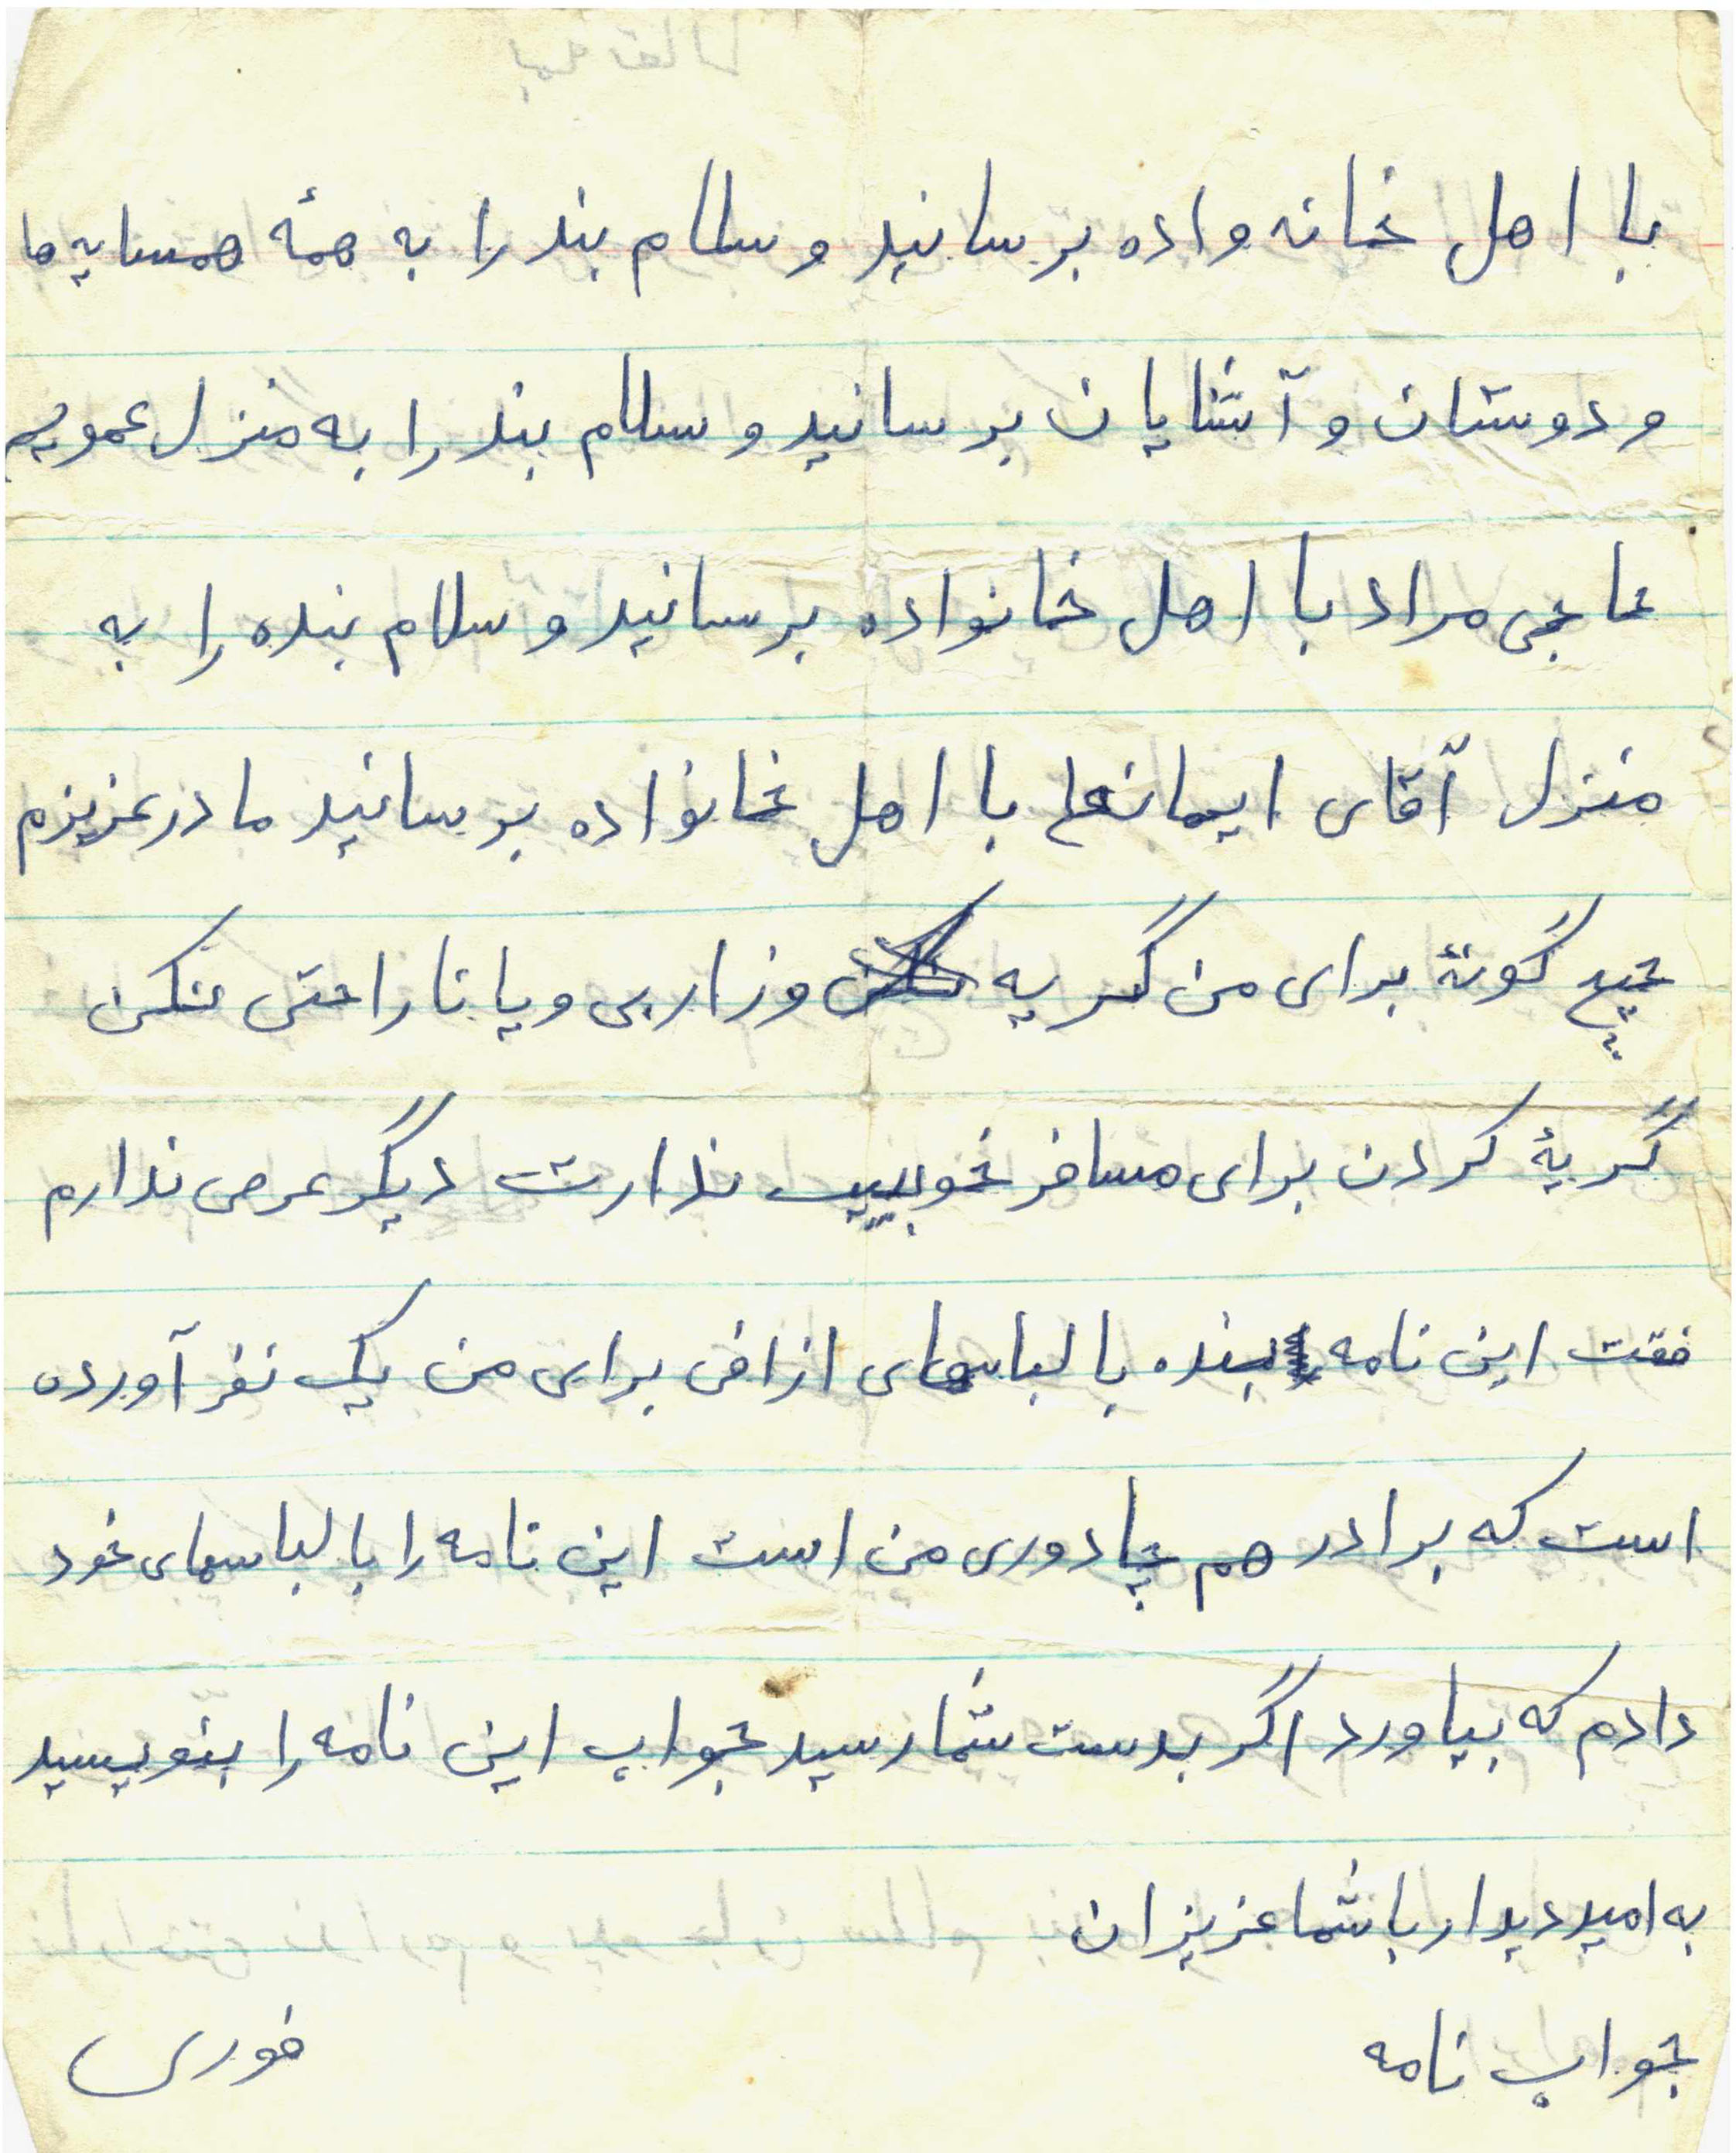 با اهل خانه واده برسانید و سلام بند را به همۀ همسایه ها
و دوستان و آشنایان برسانید و سلام بند را به منزل عمویم
حاجی مراد با اهل خانواده برسانید و سلام بنده را به
منزل آقای ایمانی با اهل خانواده برسانید مادر عزیزم
هیچ گونۀ برای من گریه وزاری و یا ناراحتی نکن
گریۀ کردن برای مسافر خوبیت ندارت دیگر عرضی ندارم
فقت این نامه بنده با لباسهای ازافی برای من یک نفر آورده
است که برادر هم چادوری من است این نامه را با لباسهای خود
دادم که بیاورد اگر بدست شما رسید جواب این نامه را بنویسید
به امید دیدار با شما عزیزان
جواب نامه فوری